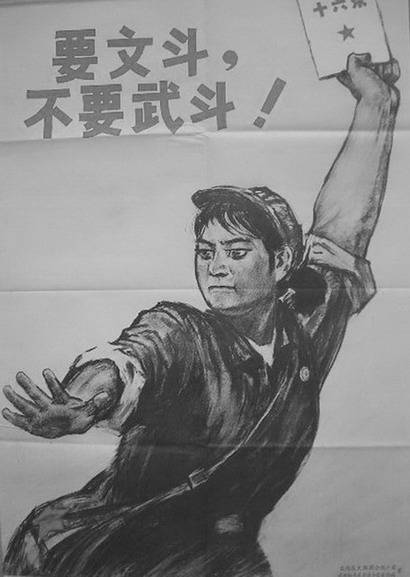 要文斗，
不要武斗！
十六条